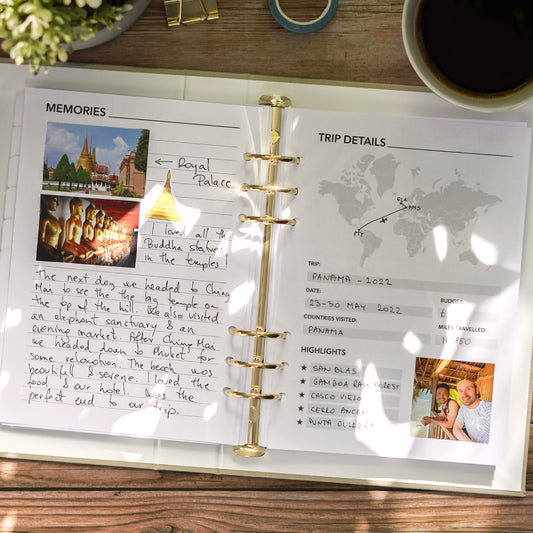 MEMORIES
← Royal
Palace
I loved all the
Buddha statues
in the temples!
The next day we headed to Ching
Mai to see the the big temple on
the top of the hill. We also visited
an elephant sanctuary & an
evening market. After Ching Mai
we headed down to Phuket for
some relaxation. The beach was
beautiful & serene. I loved the
food & our hotel. Was the
perfect end to our trip.
TRIP DETAILS
GLA
AMS
PTY
TRIP:
PANAMA - 2022
DATE:
23-30 MAY 2022
BUDGET:
£
COUNTRIES VISITED:
PANAMA
MILES TRAVELLED:
HIGHLIGHTS
★ SAN BLAS
★ GAMBOA RAIN FOREST
★ CASCO VIEJO
★ CERRO ANCON
★ PUNTA CULEBRA